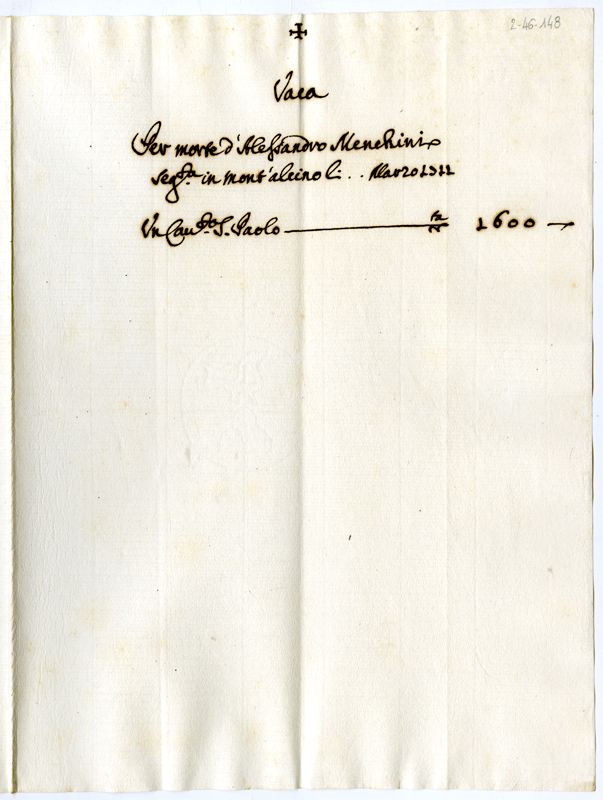 2-46-148
✠
Vaca
Per morte d'Alessandro Menchini
seg.ta in mont'alcino li .. Marzo 1711
Un Cau.to S. Paolo 1600